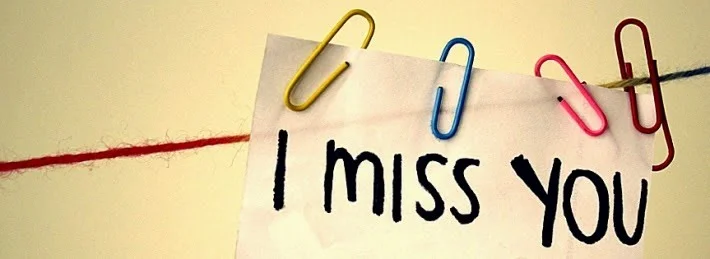 I miss YOU